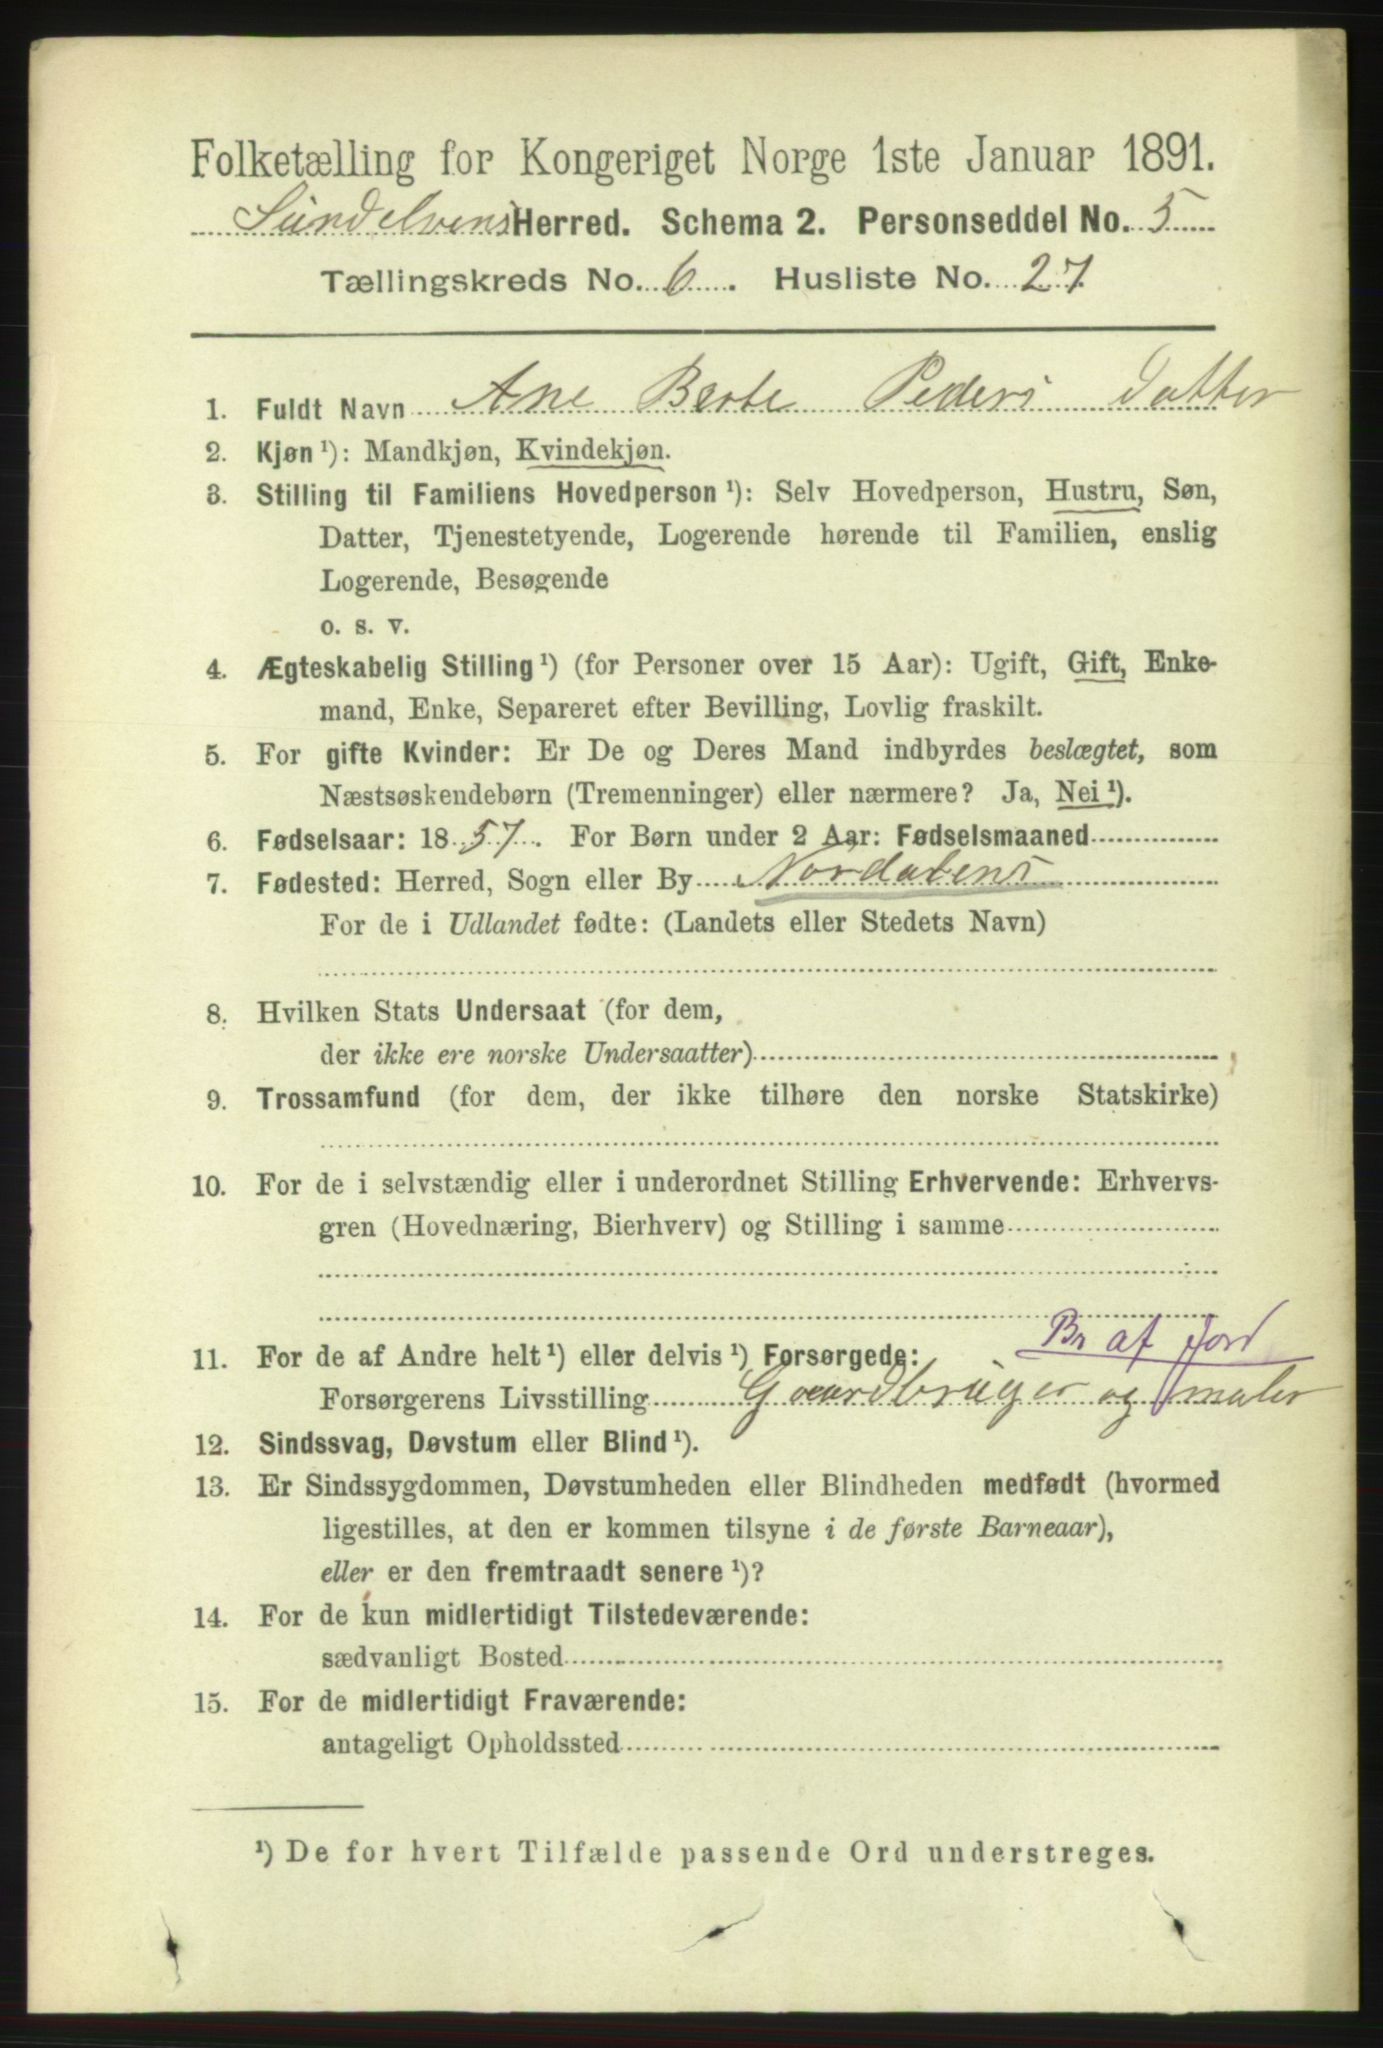 Folketælling for Kongeriget Norge 1ste Januar 1891.
Sundelvens Herred. Schema 2. Personseddel No. 5
Tællingskreds No. 6. Husliste No. 27
1. Fuldt Navn Ane Berte Peders datter
2. Kjøn ¹): Mandkjøn, Kvindekjøn.
3. Stilling til Familiens Hovedperson ¹): Selv Hovedperson, Hustru, Søn,
Datter, Tjenestetyende, Logerende hørende til Familien, enslig
Logerende, Besøgende
o. s. v.
4. Ægteskabelig Stilling ¹) (for Personer over 15 Aar): Ugift, Gift, Enke-
mand, Enke, Separeret efter Bevilling, Lovlig fraskilt.
5. For gifte Kvinder: Er De og Deres Mand indbyrdes beslægtet, som
Næstsøskendebørn (Tremenninger) eller nærmere? Ja, Nei ¹).
6. Fødselsaar: 1857. For Børn under 2 Aar: Fødselsmaaned
7. Fødested: Herred, Sogn eller By Nordalens
For de i Udlandet fødte: (Landets eller Stedets Navn)
8. Hvilken Stats Undersaat (for dem,
der ikke ere norske Undersaatter)
9. Trossamfund (for dem, der ikke tilhøre den norske Statskirke)
10. For de i selvstændig eller i underordnet Stilling Erhvervende: Erhvervs-
gren (Hovednæring, Bierhverv) og Stilling i samme
Br af Jord
11. For de af Andre helt ¹) eller delvis ¹) Forsørgede:
Forsørgerens Livsstilling Gaardbruger og maler
12. Sindssvag, Døvstum eller Blind ¹).
13. Er Sindssygdommen, Døvstumheden eller Blindheden medfødt (hvormed
ligestilles, at den er kommen tilsyne i de første Barneaar),
eller er den fremtraadt senere ¹)?
14. For de kun midlertidigt Tilstedeværende:
sædvanligt Bosted
15. For de midlertidigt Fraværende:
antageligt Opholdssted
¹) De for hvert Tilfælde passende Ord understreges.